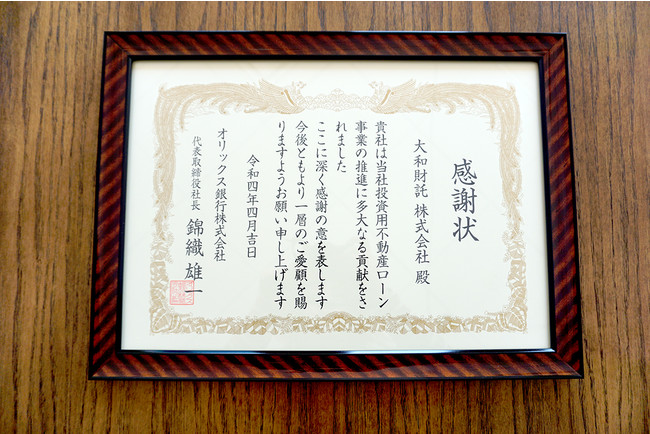 感謝状
大和財託 株式会社 殿
貴社は当社投資用不動産ローン
事業の推進に多大なる貢献をさ
れました
ここに深く感謝の意を表します
今後ともより一層のご愛顧を賜
りますようお願い申し上げます
令和四年四月吉日
オリックス銀行株式会社
代表取締役社長 錦織 雄一